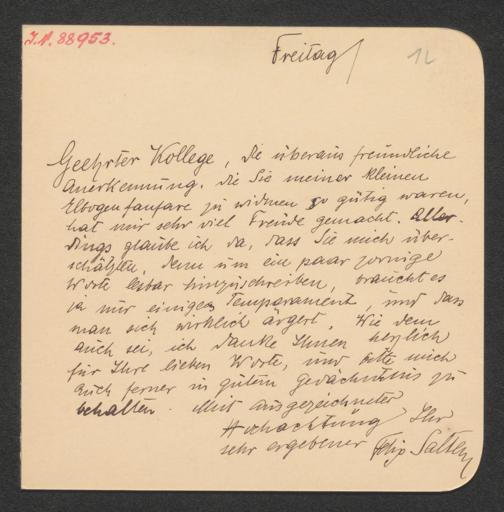 I.N. 88953.
Freitag
12
Geehrter Kollege, die überaus freundliche
Anerkennung, die Sie meiner kleinen
Elbogenfanfare zu widmen so gütig waren,
hat mir sehr viel Freude gemacht. Aller-
dings glaube ich da, dass Sie mich über-
schätzen, denn um ein paar zornige
Worte lesbar hinzuschreiben, braucht es
ja nur einiges Temperament, und dass
man sich wirklich ärgert. Wie dem
auch sei, ich danke Ihnen herzlich
für Ihre lieben Worte, und bitte mich
auch ferner in gutem Gedächtniss zu
behalten. Mit ausgezeichneter
Hochachtung Ihr
sehr ergebener Felix Salten